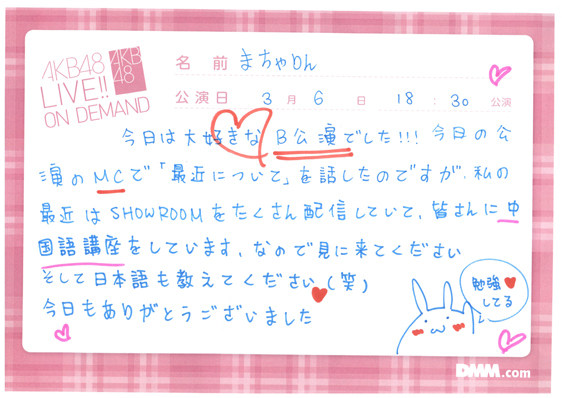 AKB48
LIVE!!
ON DEMAND
AKB
48
名前 まちゃりん
公演日 3月6日 18:30公演
今日は大好きなB公演でした!!!今日の公
演のMCで「最近について」を話したのですが、私の
最近はSHOWROOMをたくさん配信していて、皆さんに中
国語講座をしています、なので見に来てください
そして日本語も教えてください(笑)
今日もありがとうございました
勉強
してる
DMM.com